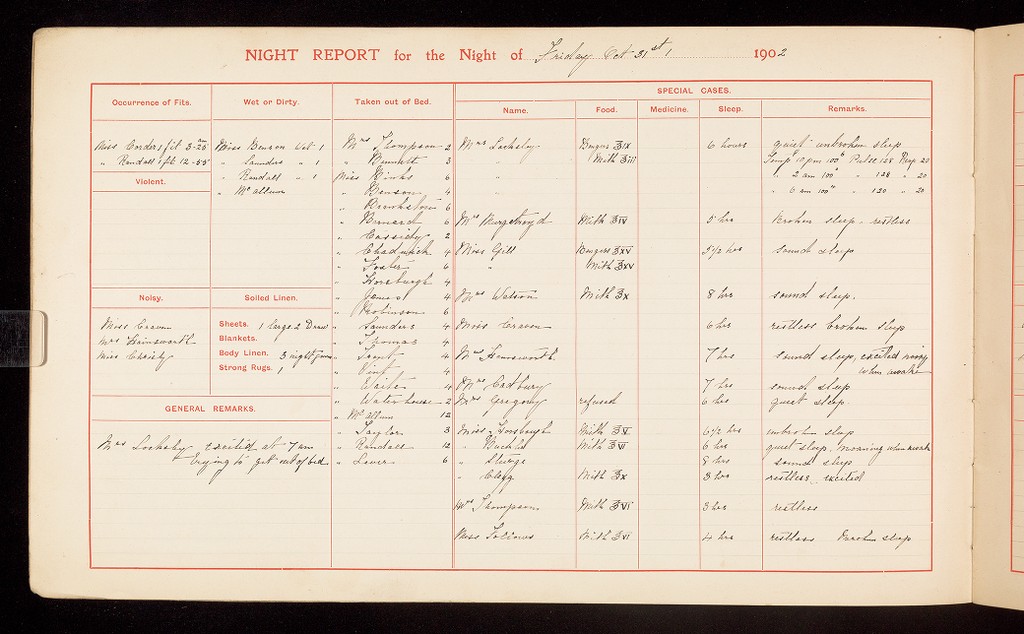 NIGHT REPORT for the Night of Friday Oct 31st 1902
Occurrence of Fits.
Miss Corder 1 fit 3-20 am
" Randall 1 fit 12-55
Violent.
Noisy.
Miss Craven
Mrs Hainsworth
Miss Christy
Wet or Dirty.
Miss Benson Wet 1
" Saunders " 1
" Randall " 1
" McCallum
Soiled Linen.
Sheets. 1 large 2 Draw
Blankets.
Body Linen. 3 night gowns
Strong Rugs. 1
GENERAL REMARKS.
Mrs Locksley excited at 7 am
trying to get out of bed
Taken out of Bed.
Mrs Thompson 2
" Bennett 3
Miss 6
" Benson 4
" 6
" Bernard 6
" Cassidy 2
" Chadwick 4
" Foster 6
" Horsburgh 4
" Jones 4
" Robinson 6
" Saunders 4
" Thomas 4
" 4
" Vint 4
" Waites 4
" Waterhouse 2
" McCallum 12
" Taylor 3
" Randall 12
" Lever 6
SPECIAL CASES.
Name. Food. Medicine. Sleep. Remarks.
Mrs Locksley Bengers ℥IX 6 hours quiet unbroken sleep
" Milk ℥iii Temp 10 pm 100 Pulse 128 Resp 20
" " 2 am 100 " 128 " 20
" 6 am 100 " 120 " 20
Mrs Murgatroyd Milk ℥IV 5 hrs Broken sleep. restless
Miss Gill Bengers ℥XV 5 1/2 hrs sound sleep
" Milk ℥XV
Mrs Watson Milk ℥X 8 hrs sound sleep.
Miss Craven 6 hrs restless broken sleep
Mrs Hainsworth 7 hrs sound sleep, excited noisy
when awake
Mrs Cadbury 7 hrs sound sleep
Mrs Gregory refused 6 hrs quiet sleep.
Miss Horsburgh Milk ℥V 6 1/2 hrs unbroken sleep
" Milk ℥VI 6 hrs quiet sleep, moaning when awake
" Sturge 8 hrs sound sleep
" Clegg Milk ℥X 3 hrs restless excited
Mrs Thompson Milk ℥VI 3 hrs restless
Miss Follows Milk ℥VI 4 hrs restless Broken sleep